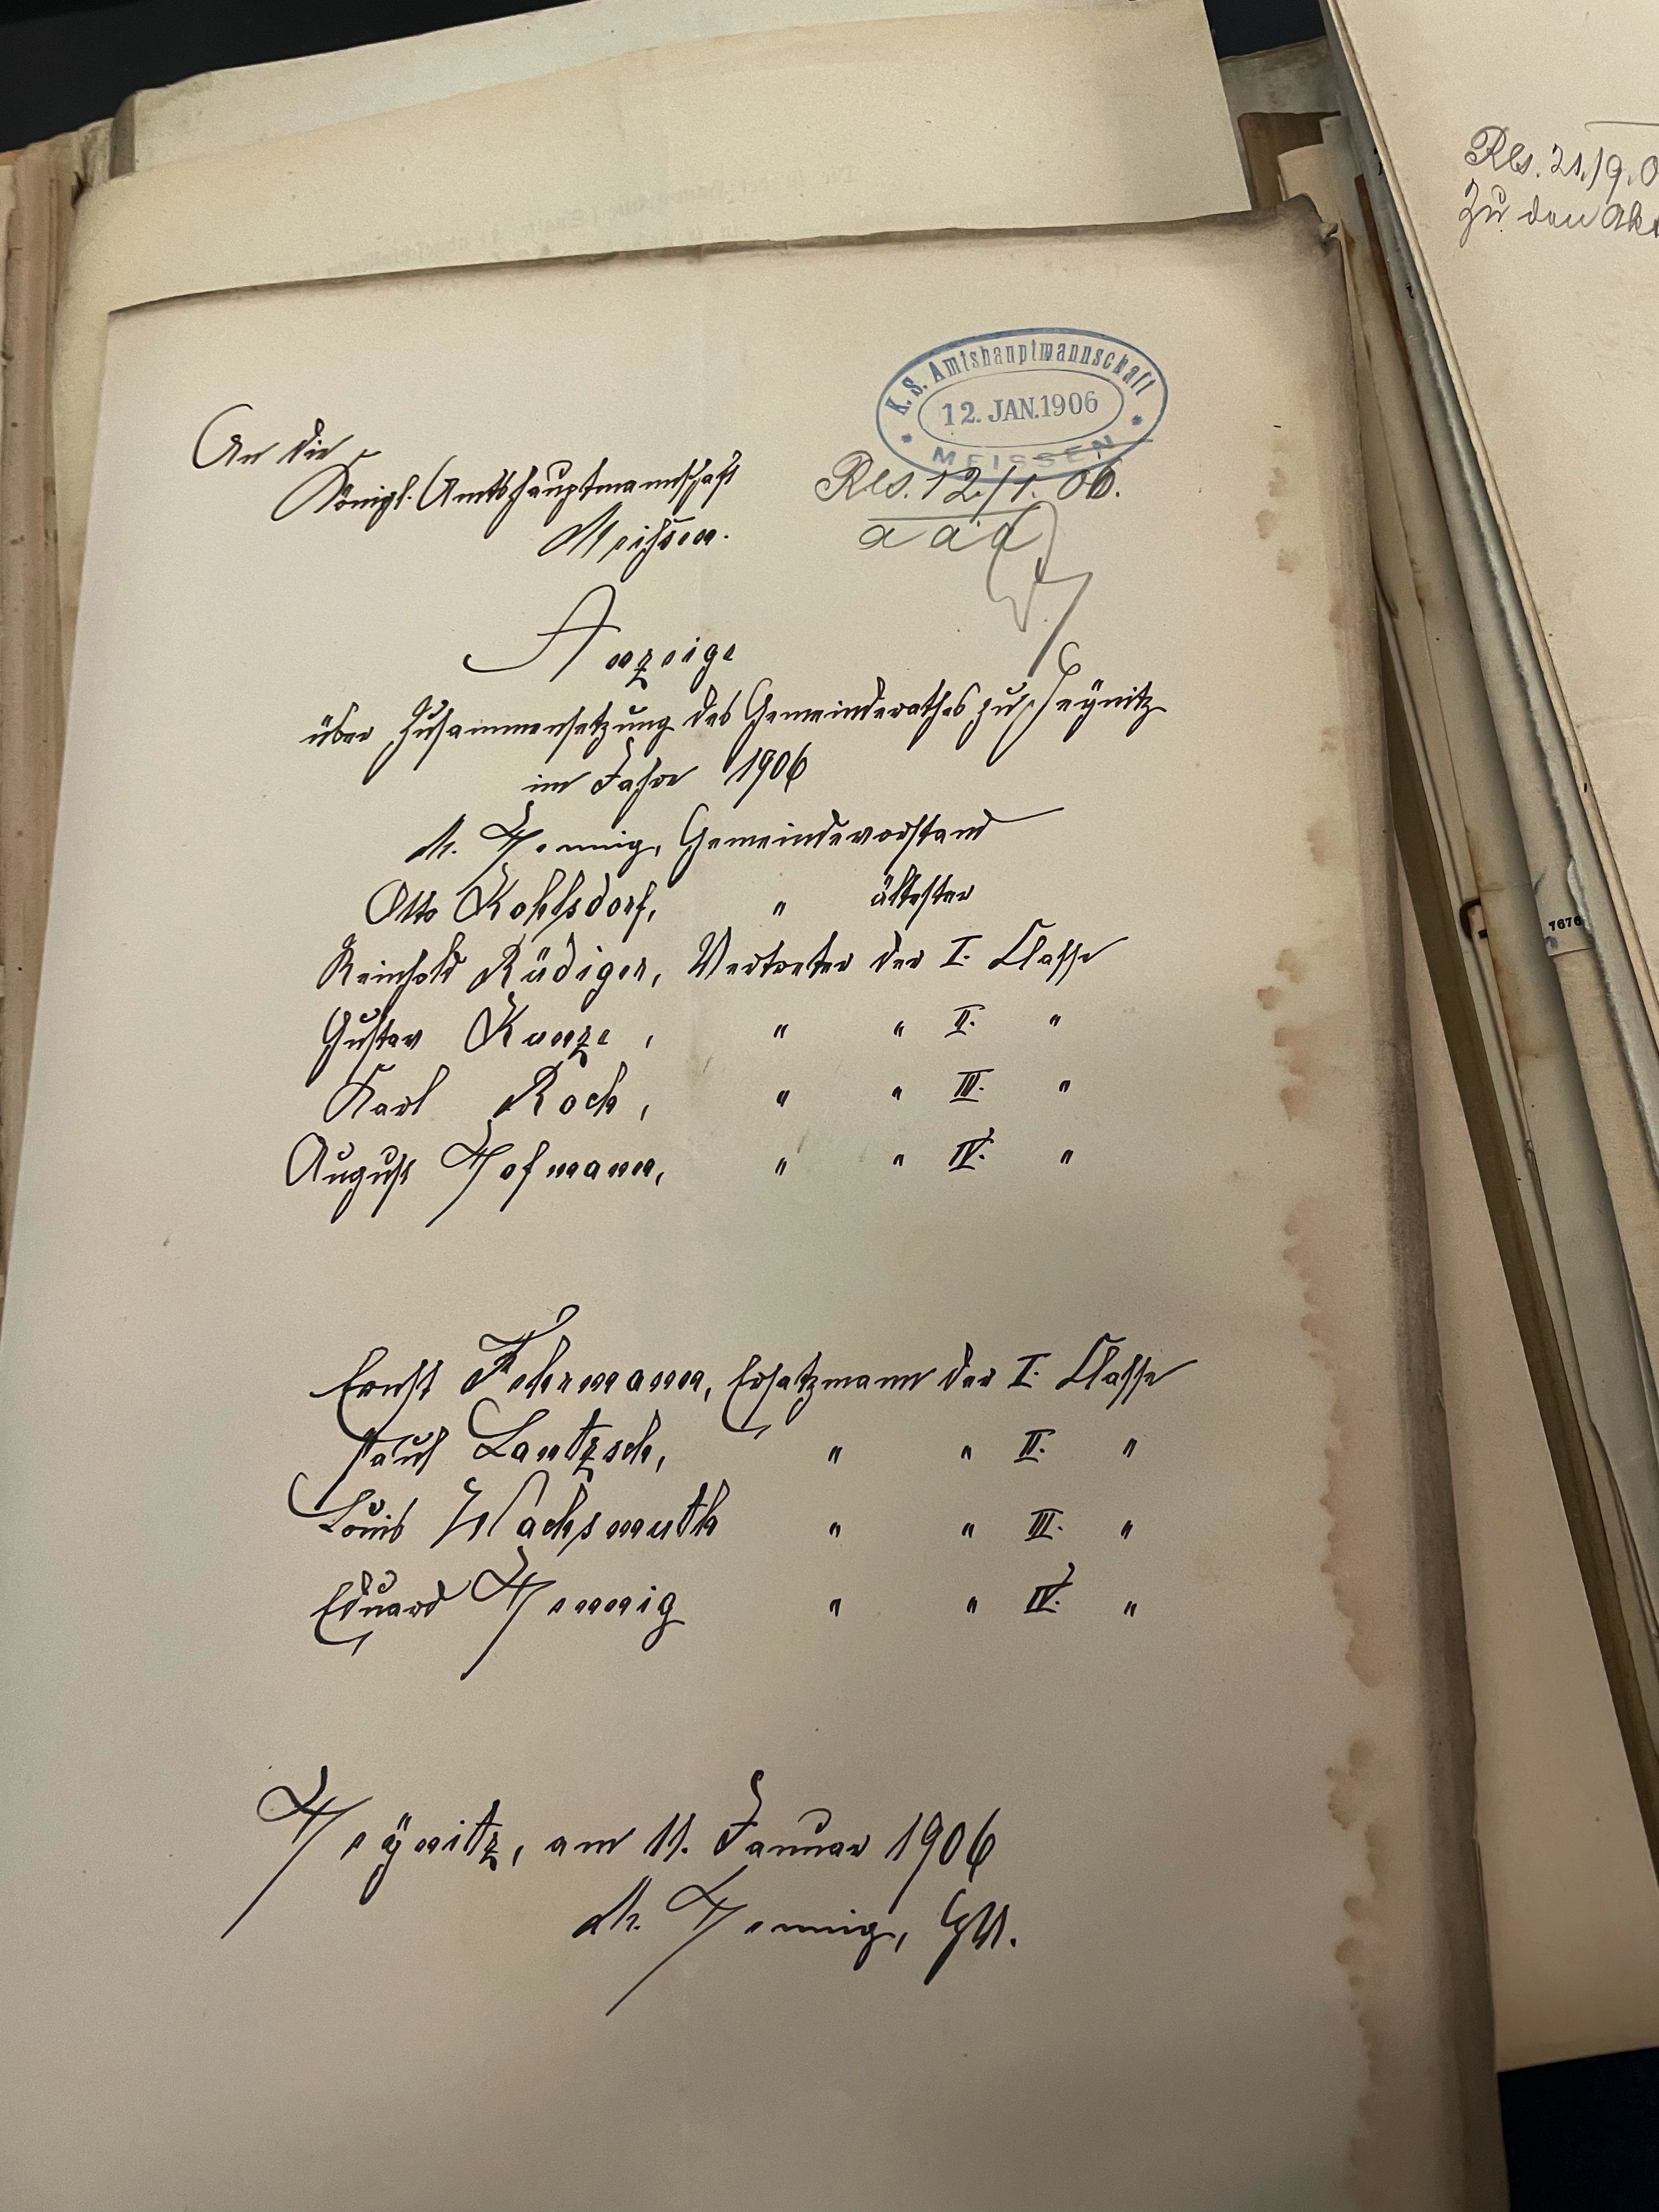 K. S. Amtshauptmannschaft
12. JAN. 1906
MEISSEN
An die
Königl. Amtshauptmannschaft
Meißen.
Res. 12./1. 06.
a a a
Anzeige
über Zusammensetzung des Gemeinderathes zu Heÿnitz
im Jahre 1906
M. Hennig, Gemeindevorstand
Otto Kohlsdorf, " ältester
Reinhold Rüdiger, Vertreter der I. Classe
Gustav Kunze, " " II. "
Karl Koch, " " III. "
August Hofmann, " " IV. "
Ernst Fehrmann, Ersatzmann der I. Classe
Paul Lantzsch, " " II. "
Louis Wachsmuth " " III. "
Eduard Hennig " " IV. "
Heÿnitz, am 11. Januar 1906
M. Hennig, GV.
Res. 21./9. 0
Zu den Akt
7676